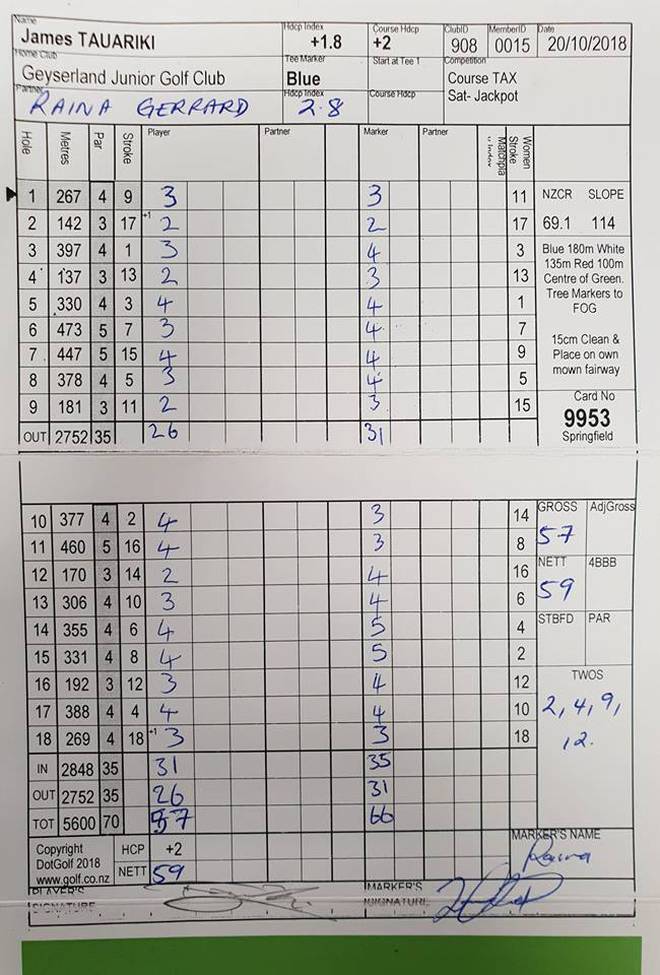 Name Hdcp Index Course Hdcp ClubID MemberID Date
James TAUARIKI +1.8 +2 908 0015 20/10/2018
Home Club Tee Marker Start at Tee 1 Competition
Geyserland Junior Golf Club Blue Course TAX
Partner Hdcp Index Course Hdcp Sat- Jackpot
RAINA GERRARD 2.8
Hole Metres Par Stroke Player Partner Marker Partner Matchpla y Index Women Stroke
1 267 4 9 3 3 11 NZCR SLOPE
2 142 3 17 +1 2 2 17 69.1 114
3 397 4 1 3 4 3 Blue 180m White
4 137 3 13 2 3 13 135m Red 100m
Centre of Green.
5 330 4 3 4 4 1 Tree Markers to
FOG
6 473 5 7 3 4 7
7 447 5 15 4 4 9 15cm Clean &
Place on own
8 378 4 5 3 4 5 mown fairway
9 181 3 11 2 3 15 Card No
9953
OUT 2752 35 26 31 Springfield
10 377 4 2 4 3 14 GROSS AdjGross
11 460 5 16 4 3 8 57
12 170 3 14 2 4 16 NETT 4BBB
13 306 4 10 3 4 6 59
14 355 4 6 4 5 4 STBFD PAR
15 331 4 8 4 5 2
16 192 3 12 3 4 12 TWOS
17 388 4 4 4 4 10 2, 4, 9,
18 269 4 18 +1 3 3 18 12.
IN 2848 35 31 35
OUT 2752 35 26 31
TOT 5600 70 57 66
Copyright HCP +2 MARKER'S NAME
DotGolf 2018 Raina
www.golf.co.nz NETT 59
PLAYER'S MARKER'S
SIGNATURE SIGNATURE